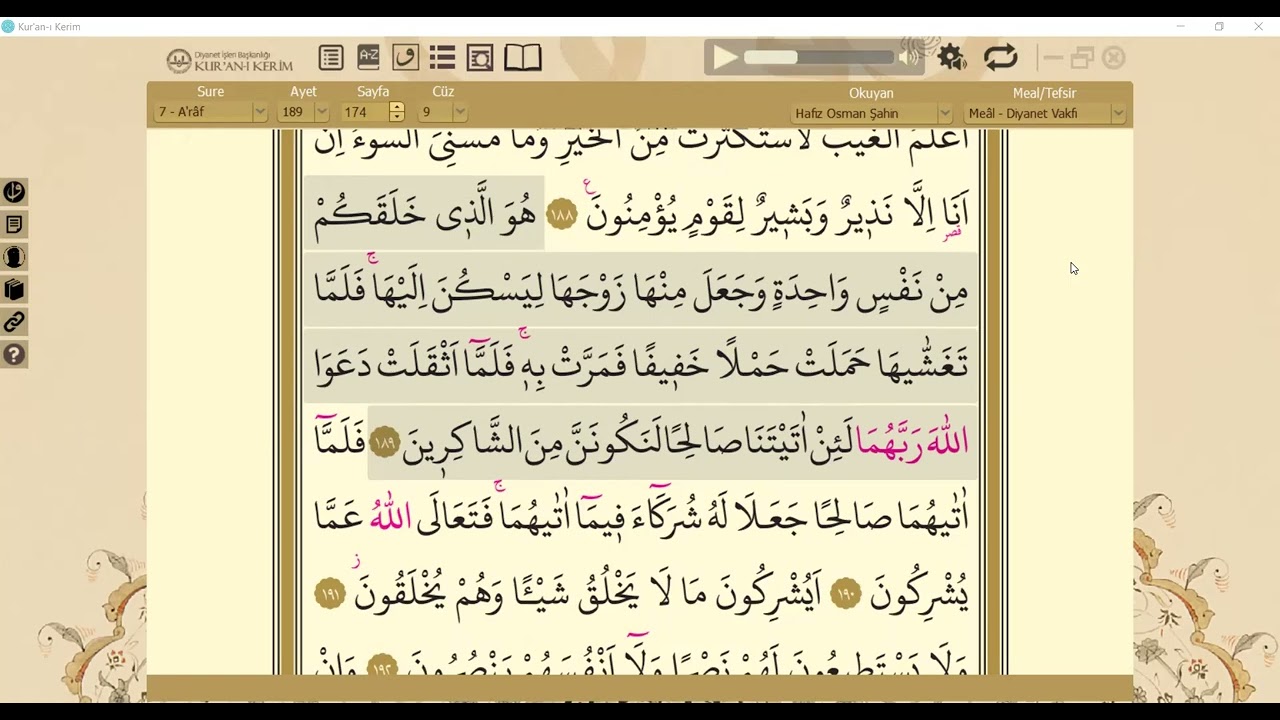 Kur'an-ı Kerim
Diyanet İşleri Başkanlığı
KUR'AN-I KERİM
A-Z
Sure Ayet Sayfa Cüz Okuyan Meal/Tefsir
7 - A'râf 189 174 9 Hafız Osman Şahin Meâl - Diyanet Vakfı
اَعْلَمُ الْغَيْبَ لَاسْتَكْثَرْتُ مِنَ الْخَيْرِ وَمَا مَسَّنِيَ السُّوءُ اِنْ
اَنَا۬ اِلَّا نَذ۪يرٌ وَبَش۪يرٌ لِقَوْمٍ يُؤْمِنُونَ ﴿١٨٨﴾ هُوَ الَّذ۪ي خَلَقَكُمْ
مِنْ نَفْسٍ وَاحِدَةٍ وَجَعَلَ مِنْهَا زَوْجَهَا لِيَسْكُنَ اِلَيْهَاۚ فَلَمَّا
تَغَشّٰيهَا حَمَلَتْ حَمْلًا خَف۪يفًا فَمَرَّتْ بِه۪ۚ فَلَمَّٓا اَثْقَلَتْ دَعَوَا
اللّٰهَ رَبَّهُمَا لَئِنْ اٰتَيْتَنَا صَالِحًا لَنَكُونَنَّ مِنَ الشَّاكِر۪ينَ ﴿١٨٩﴾ فَلَمَّٓا
اٰتٰيهُمَا صَالِحًا جَعَلَا لَهُ شُرَكَٓاءَ ف۪يمَٓا اٰتٰيهُمَاۚ فَتَعَالَى اللّٰهُ عَمَّا
يُشْرِكُونَ ﴿١٩٠﴾ اَيُشْرِكُونَ مَا لَا يَخْلُقُ شَيْـًٔا وَهُمْ يُخْلَقُونَۘ ﴿١٩١﴾
وَلَا يَسْتَط۪يعُونَ لَهُمْ نَصْرًا وَلَٓا اَنْفُسَهُمْ يَنْصُرُونَ ﴿١٩٢﴾ وَاِنْ